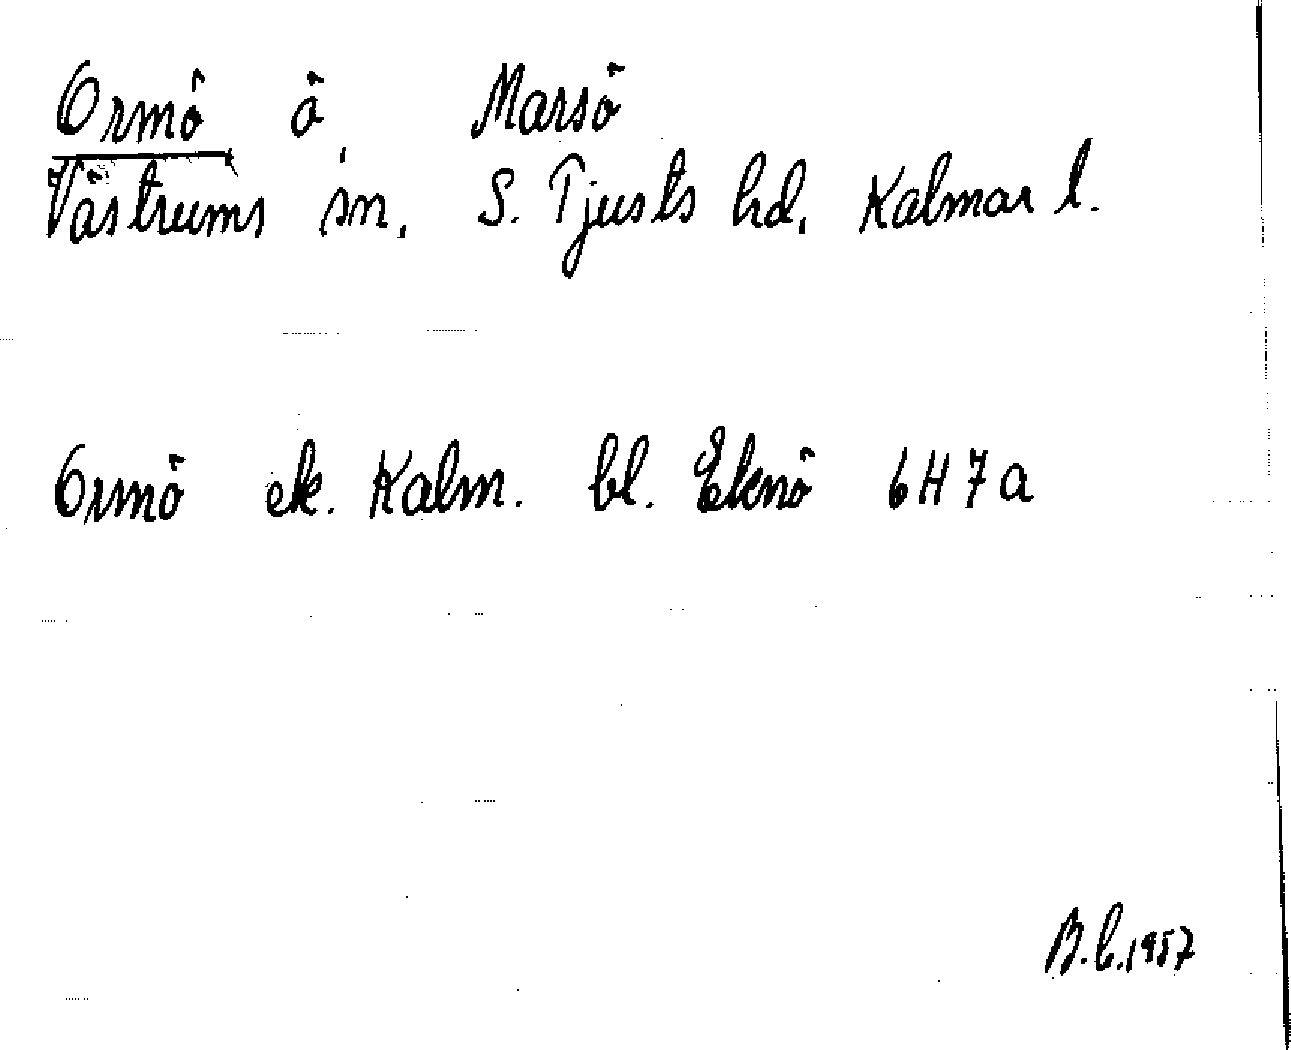 Ormö ö, Marsö
Västrums sn. S. Tjusts hd. Kalmar l.
Ormö ek. Kalm. bl. Eknö 6H7a
B.C.1957